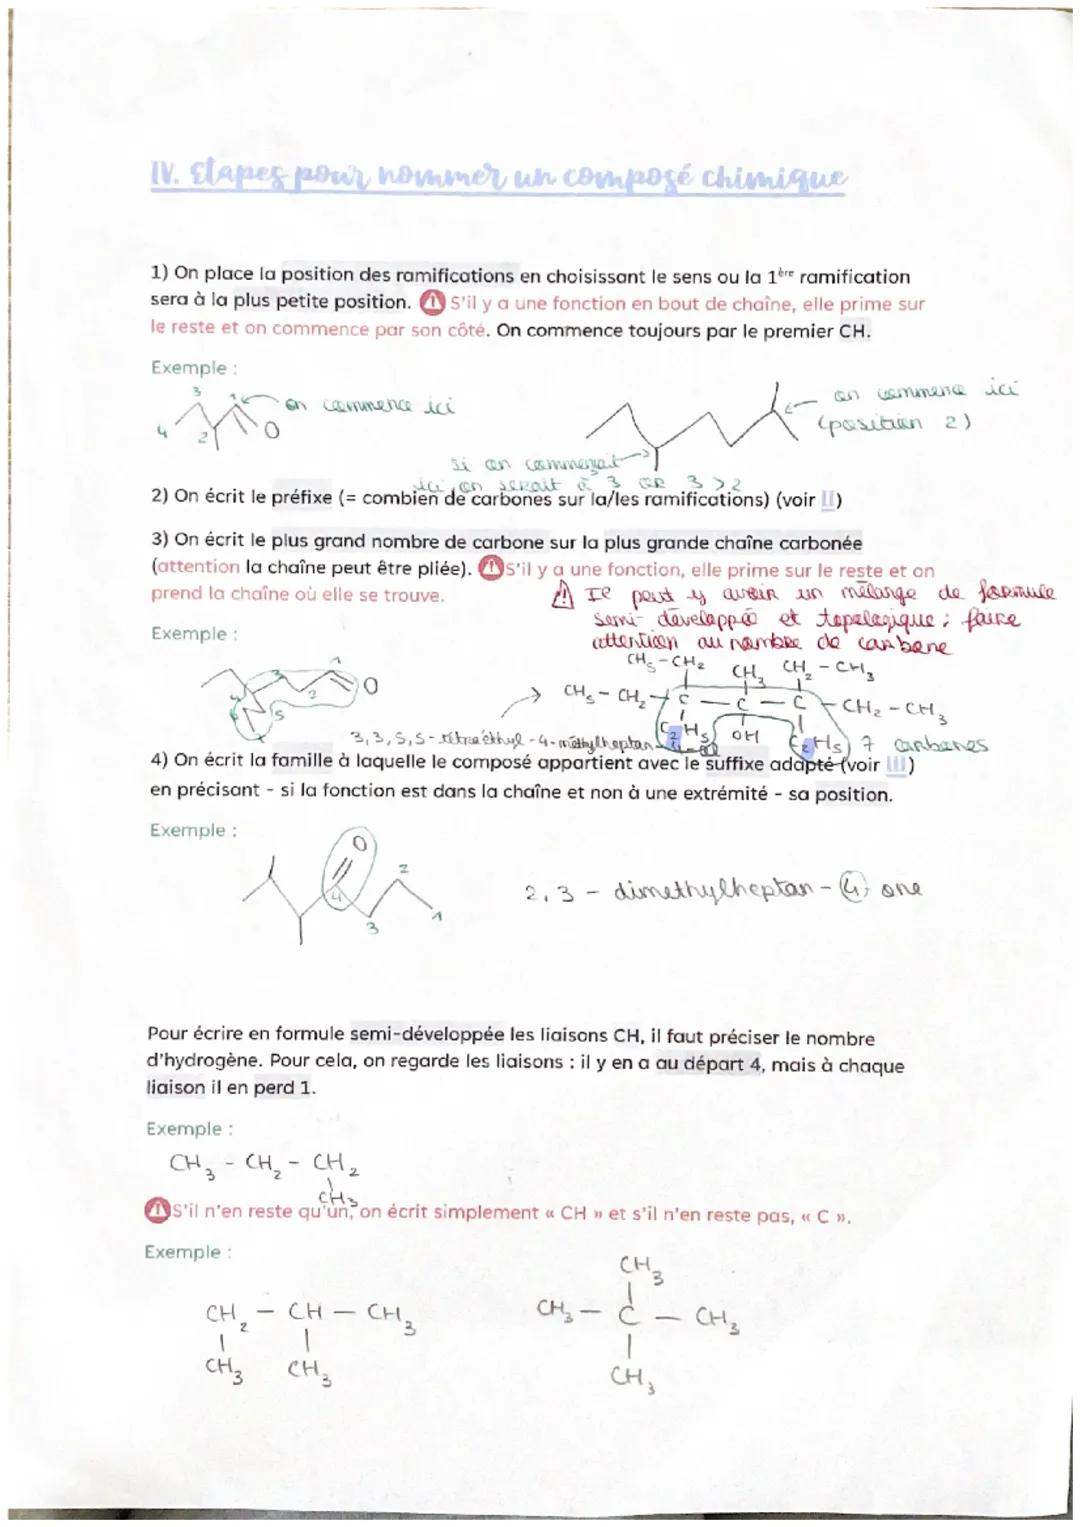 IV. Etapes pour nommer un composé chimique
1) On place la position des ramifications en choisissant le sens ou la 1ère ramification
sera à la plus petite position. S'il y a une fonction en bout de chaîne, elle prime sur
le reste et on commence par son côté. On commence toujours par le premier CH.
Exemple :
3 1 on commence ici
4 2 O
on commence ici
(position 2)
si on commençait
ici, on serait à 3 or 3 > 2
2) On écrit le préfixe (= combien de carbones sur la/les ramifications) (voir II)
3) On écrit le plus grand nombre de carbone sur la plus grande chaîne carbonée
(attention la chaîne peut être pliée). S'il y a une fonction, elle prime sur le reste et on
prend la chaîne où elle se trouve.
Il peut y avoir un mélange de formule
semi-développé et topologique ; faire
attention au nombre de carbone
Exemple :
1 2 3 4 5 O
CH₃-CH₂ CH₃ CH₂-CH₃
CH₃-CH₂-C-C-C-CH₂-CH₃
C₂H₅ OH C₂H₅ 7 carbones
3,3,5,5-tétraéthyl-4-méthylheptan-4-ol
4) On écrit la famille à laquelle le composé appartient avec le suffixe adapté (voir III)
en précisant - si la fonction est dans la chaîne et non à une extrémité - sa position.
Exemple :
O
4 3 2 1
2,3-dimethylheptan-4 one
Pour écrire en formule semi-développée les liaisons CH, il faut préciser le nombre
d'hydrogène. Pour cela, on regarde les liaisons : il y en a au départ 4, mais à chaque
liaison il en perd 1.
Exemple :
CH₃ - CH₂ - CH₂
CH₃
S'il n'en reste qu'un, on écrit simplement « CH » et s'il n'en reste pas, « C ».
Exemple :
CH₂ - CH - CH₃
CH₃ CH₃
CH₃
CH₃ - C - CH₃
CH₃